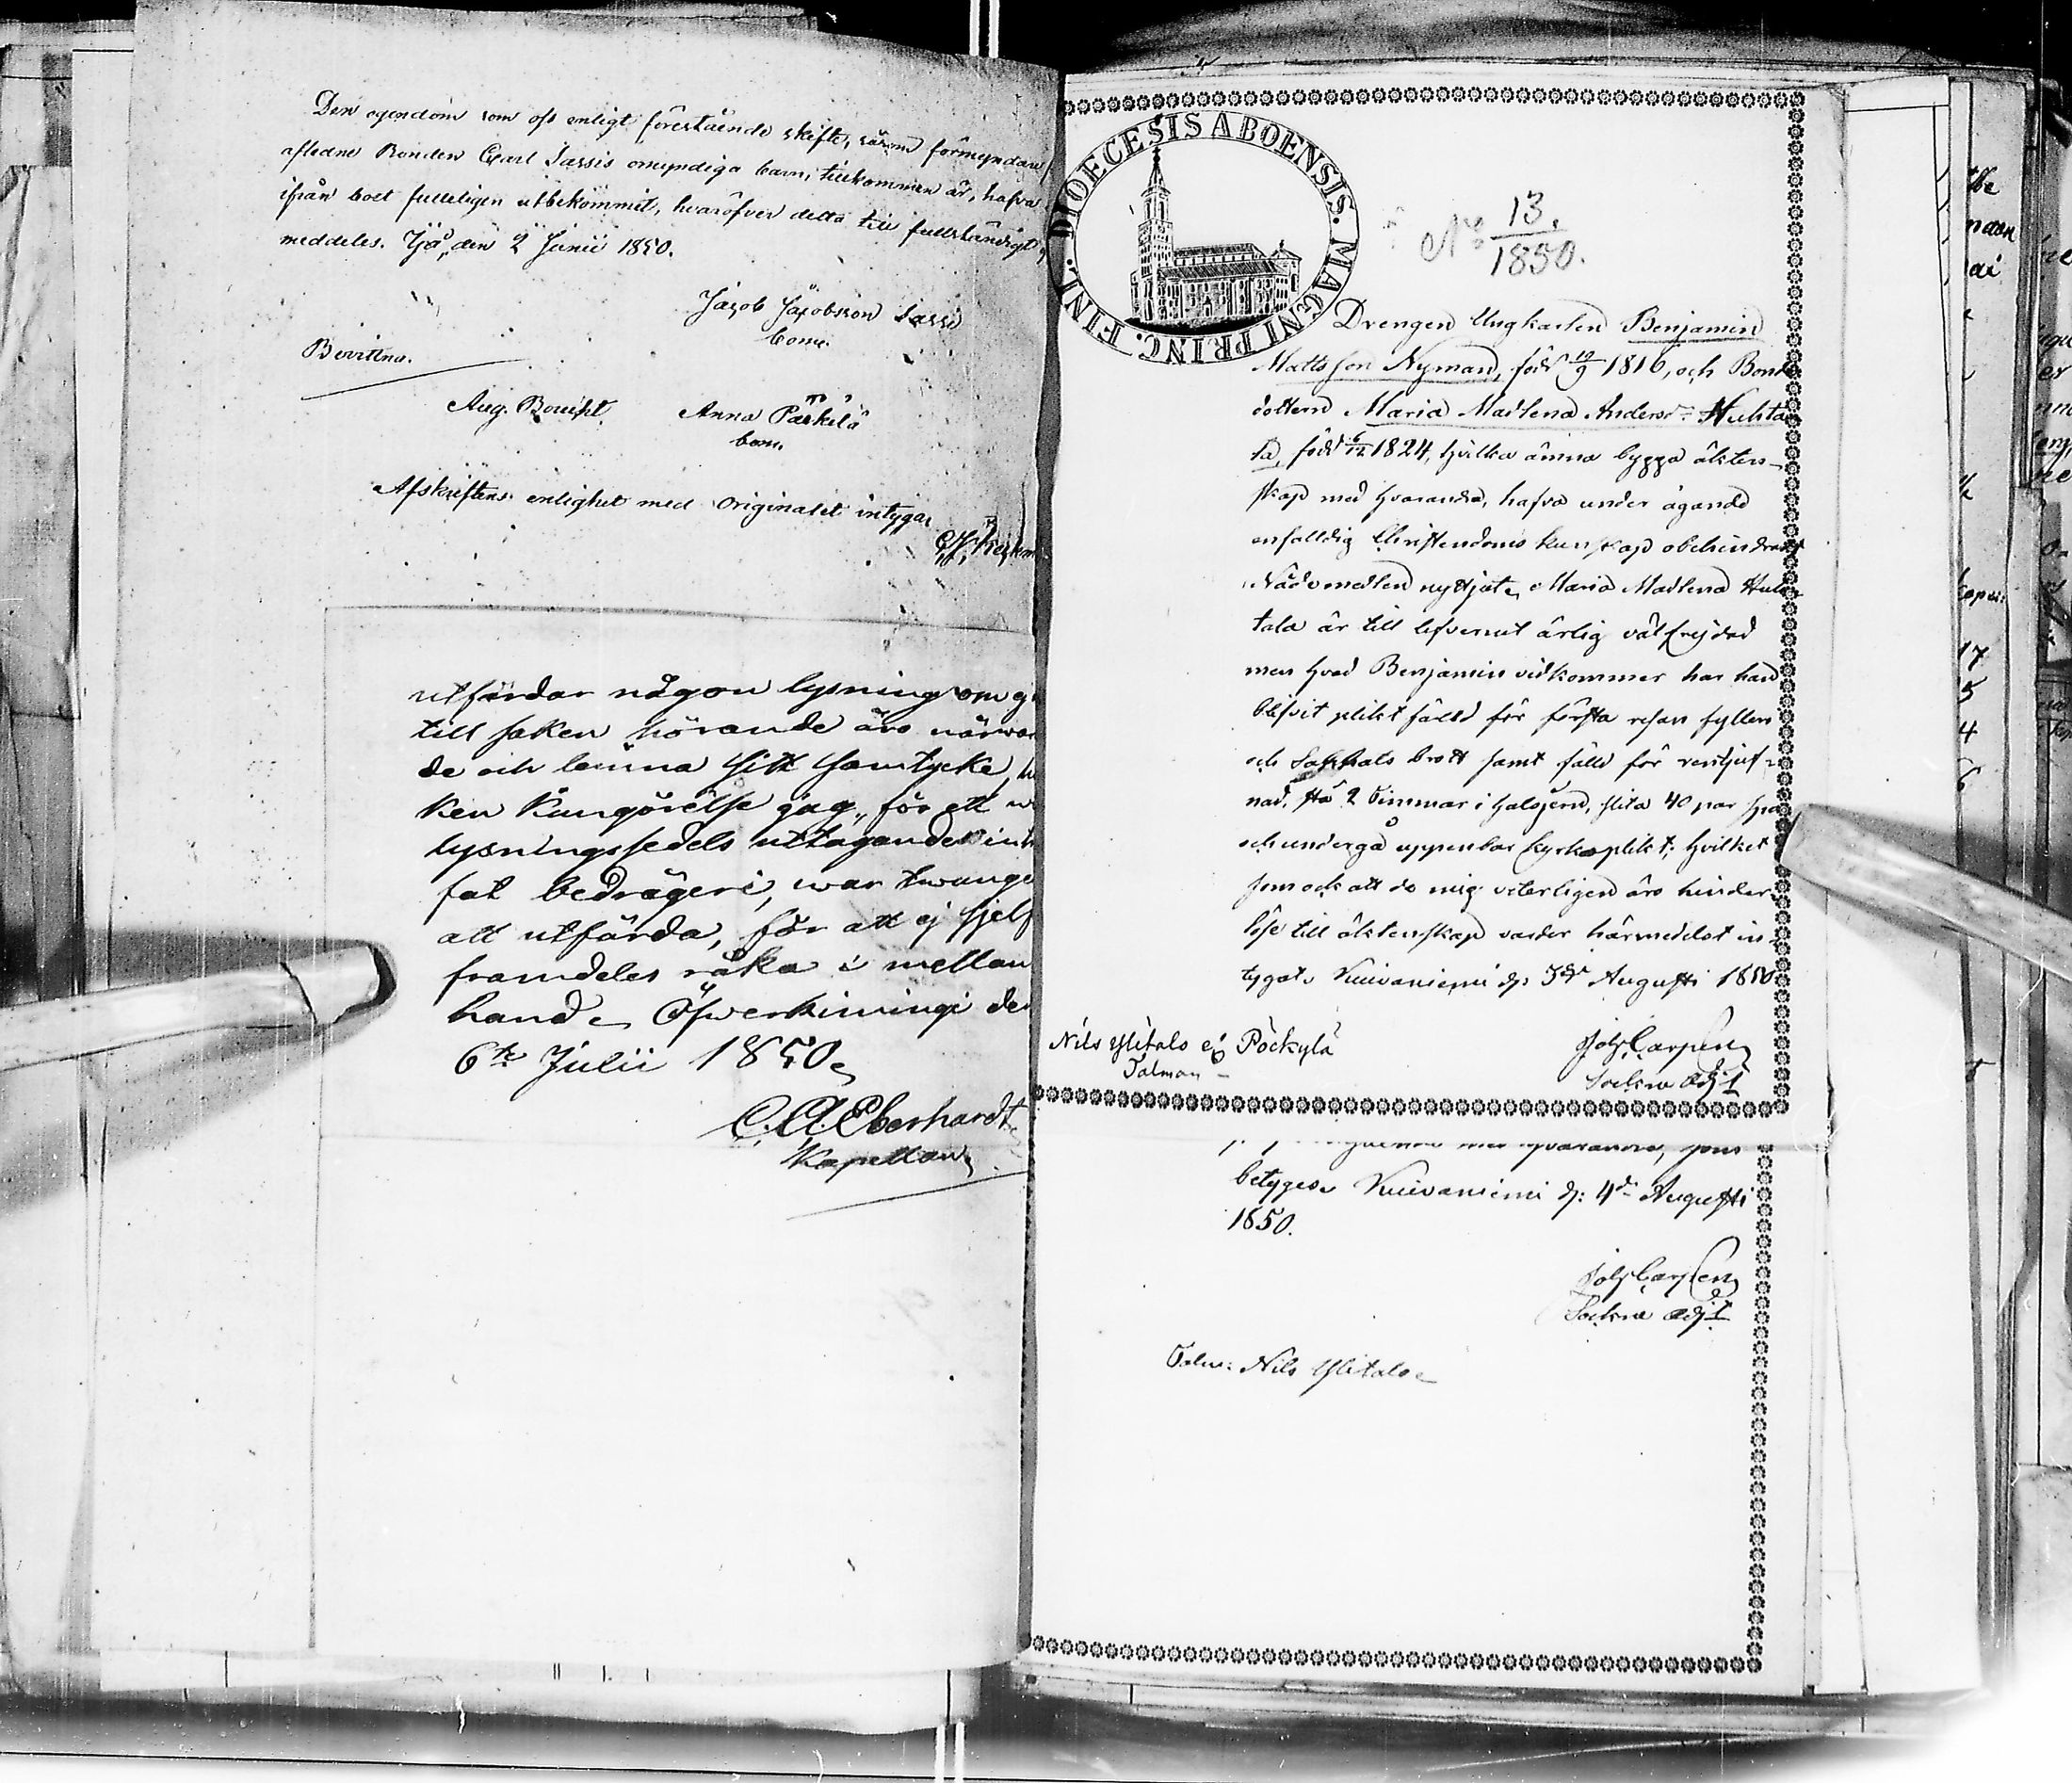 Den egendom som oss enligt förestående skifte, såsom förmyndare
afledne Bonden Carl Sassis omyndiga barn, tillkommen är, hafva
ifrån boet fulleligen utbekommit, hvaröfver detta till fullständigt
meddeles. Ijo, den 2 Junii 1850.
Jacob Jacobsson Sassi
bom.
Bevittna.
Aug. Anna Parkila
bom.
Afskriftens enlighet med Originalet intygar
utfärdar någon lysning om
till saken hörande äro närvar
de och lemna sitt samtycke,
ken kungörelse jag, för ett
lysningssedels uttagande
fat bedrägeri, war twunge
att utfärda, för att ej sjelf
framdeles råka i mellan
hand. Öfwerkiiminge den
6te Julii 1850.
C. A. Eberhardt
Kapellan
DIOECESIS ABOENSIS. MAGNI PRINC. FINL.
No 13.
1850.
Drengen Ungkarlen Benjamin
Mattsson Nyman, född 19/9 1816, och Bonde
dottern Maria Madlena Andersdr Huhta
la, född 1824, hvilka ämna bygga äkten-
skap med hvarandra, hafva under ägande
enfalldig Christendoms kunskap obehindradt
Nådemedlen nyttjat. Maria Madlena Huh-
tala är till lefvernet ärlig välfrejdad
men hvad Benjamin vidkommer har han
blifvit pliktfälld för första resan fylleri
och Sabbats brott samt fälld för
nad, stå 2 timmar i halsjern, slita 40 par spö
och undergå uppenbar kyrkoplikt; hvilket
som ock att de mig veterligen äro hinder-
löse till äktenskap varder härmedelst in-
tygat. Kuivaniemi d. 3dje Augusti 1850
Nils Ylitalo ej Pöckylä
Tolman
Joh. Carpen
Sockne Adjt
med hvarandra, som
betygas. Kuivaniemi d: 4de Augusti
1850.
Joh Carpen
Sockne adjt
Nils Ylitalo